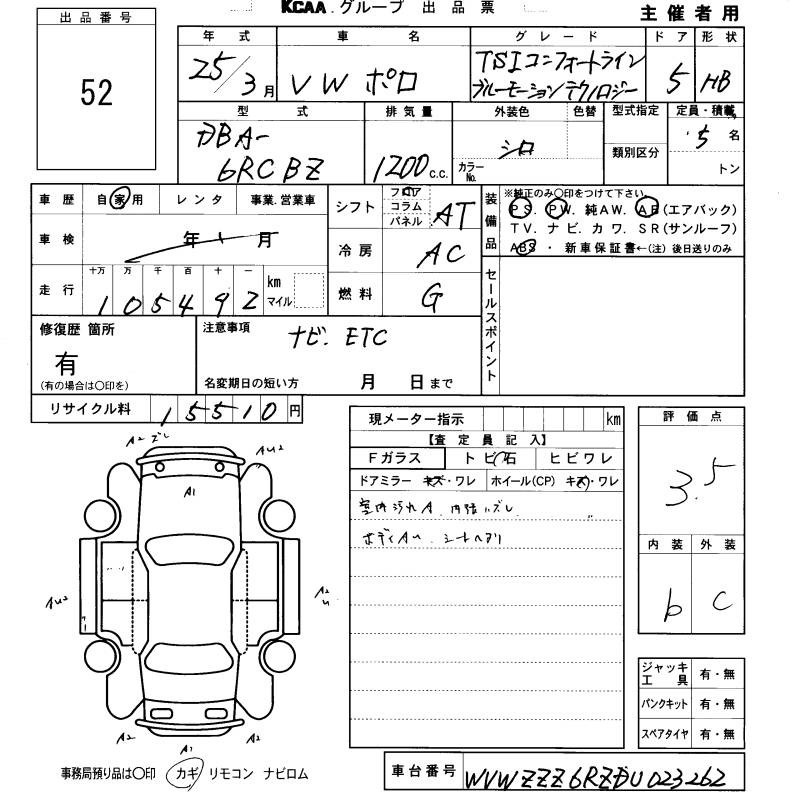 KCAA.グループ 出品票
主催者用
出品番号
52
年式 車名 グレード ドア 形状
25/3月 VW ポロ TSIコンフォートライン
ブルーモーションテクノロジー 5 HB
型式 排気量 外装色 色替 型式指定 定員・積載
DBA-
6RCBZ 1200c.c. シロ カラーNo. 類別区分 5名
トン
車歴 自家用 レンタ 事業.営業車
車検 年 月
走行 十万 万 千 百 十 一 km マイル
105492
シフト フロア コラム パネル AT
冷房 AC
燃料 G
装備品 ※純正のみ〇印をつけて下さい。
PS. PW. 純AW. AB(エアバック)
TV. ナビ. カワ. SR(サンルーフ)
ABS ・ 新車保証書←(注) 後日送りのみ
セールスポイント
修復歴 箇所
有
(有の場合は〇印を)
注意事項
ナビ. ETC
名変期日の短い方 月 日まで
リサイクル料 15510円
現メーター指示 km
【査定員記入】
Fガラス トビ石 ヒビワレ
ドアミラー キズ・ワレ ホイール(CP) キズ・ワレ
室内汚れA. 内張ハズレ
評価点
3.5
内装 外装
b C
A2 ズレ
AU2
A1
AU2
A2
A2
A1
A2
ジャッキ工具 有・無
パンクキット 有・無
スペアタイヤ 有・無
事務局預り品は〇印 カギ リモコン ナビロム
車台番号 WVWZZZ6RZDU023262